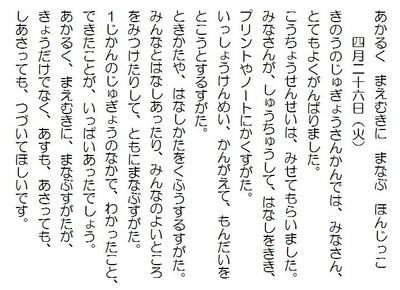 あかるく　まえむきに　まなぶ　ほんじっこ
四月二十六日（火）
きのうのじゅぎょうさんかんでは、みなさん、
とてもよくがんばりました。
こうちょうせんせいは、みせてもらいました。
みなさんが、しゅうちゅうして、はなしをきき、
プリントやノートにかくすがた。
いっしょうけんめい、かんがえて、もんだいを
とこうとするすがた。
ときかたや、はなしかたをくふうするすがた。
みんなとはなしあったり、みんなのよいところ
をみつけたりして、ともにまなぶすがた。
１じかんのじゅぎょうのなかで、わかったこと、
できたことが、いっぱいあったでしょう。
あかるく、まえむきに、まなぶすがたが、
きょうだけでなく、あすも、あさっても、
しあさっても、つづいてほしいです。